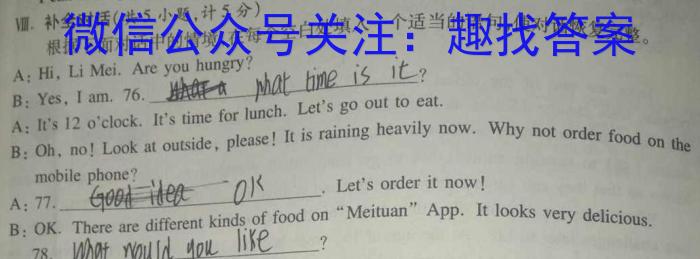 Ⅷ. 补全对话(共5小题,计5分)
微信公众号关注：趣找答案
A: Hi, Li Mei. Are you hungry?
B: Yes, I am. 76. what time is it?
A: It's 12 o'clock. It's time for lunch. Let's go out to eat.
B: Oh, no! Look at outside, please! It is raining heavily now. Why not order food on the
mobile phone?
A: 77. Good idea OK. Let's order it now!
B: OK. There are different kinds of food on "Meituan" App. It looks very delicious.
78. What would you like?